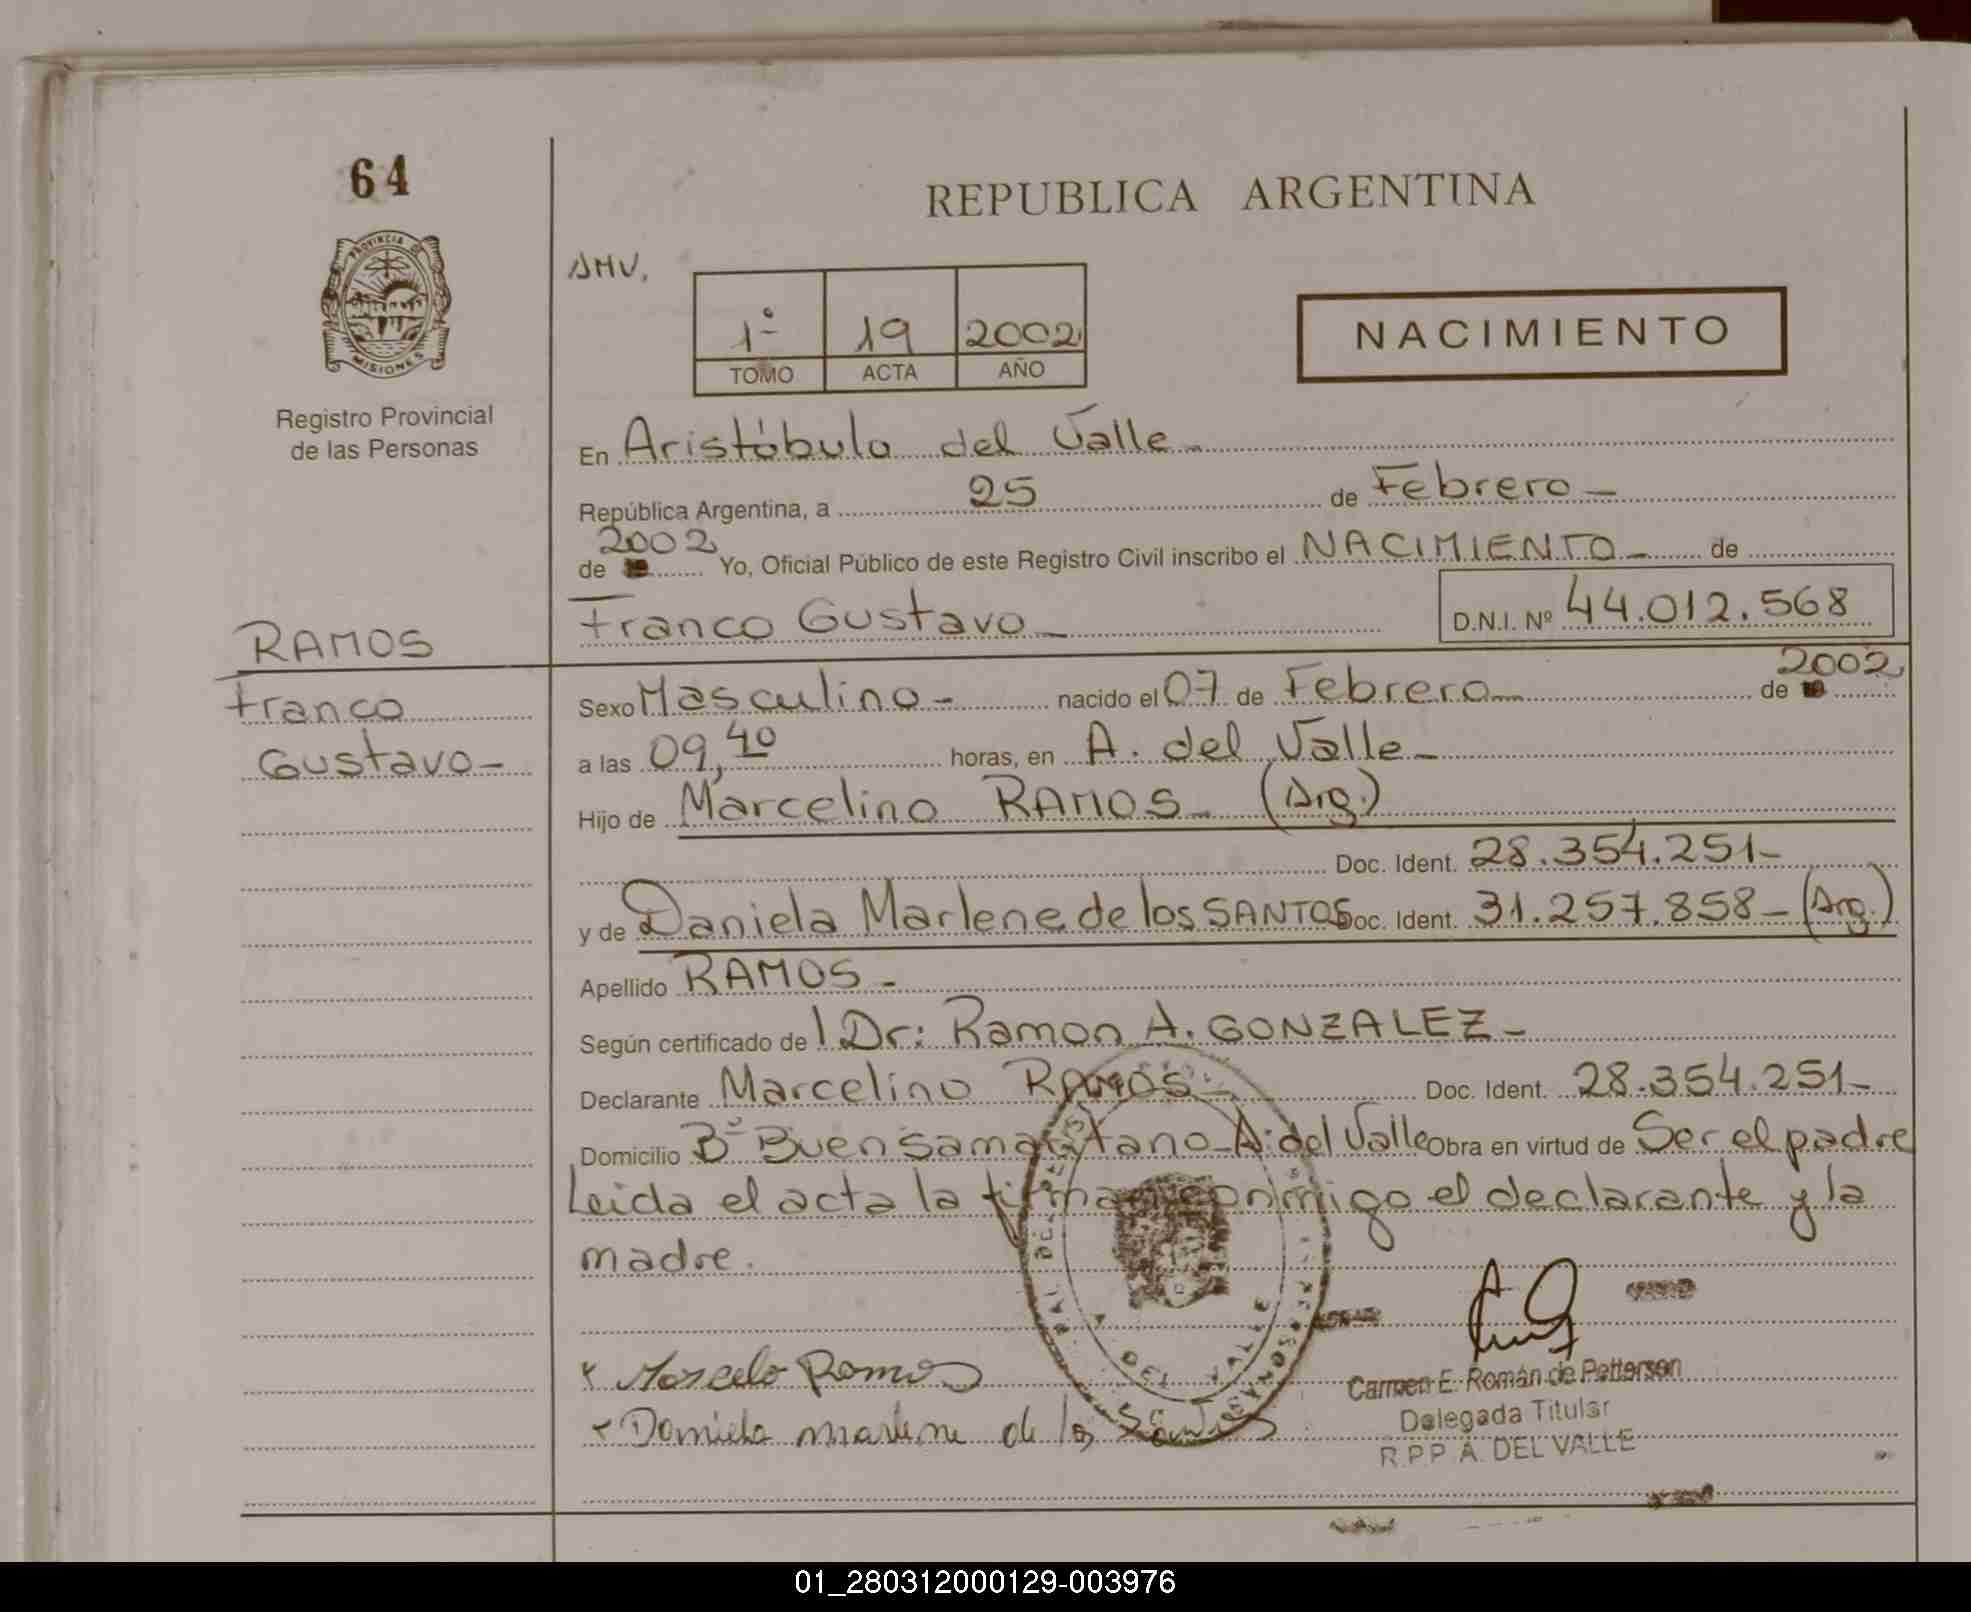 64
REPUBLICA ARGENTINA
PROVINCIA DE
MISIONES
AMV.
1º 19 2002
TOMO ACTA AÑO
NACIMIENTO
Registro Provincial
de las Personas
En Aristóbulo del Valle
República Argentina, a 25 de Febrero
de 2002 Yo, Oficial Público de este Registro Civil inscribo el NACIMIENTO de
Franco Gustavo D.N.I. Nº 44.012.568
RAMOS
Franco
Gustavo
Sexo Masculino nacido el 07 de Febrero de 2002
a las 09,40 horas, en A. del Valle
Hijo de Marcelino RAMOS (Arg.)
Doc. Ident. 28.354.251
y de Daniela Marlene de los SANTOS Doc. Ident. 31.257.858 (Arg.)
Apellido RAMOS
Según certificado de l Dr: Ramon A. GONZALEZ
Declarante Marcelino RAMOS Doc. Ident. 28.354.251
Domicilio Bº Buen Samaritano A. del Valle Obra en virtud de Ser el padre
Leida el acta la firman conmigo el declarante y la
madre.
x Marcelo Ramos
x Daniela marlene de los Santos
Carmen E. Román de Petterson
Delegada Titular
R.P.P A. DEL VALLE
01_280312000129-003976